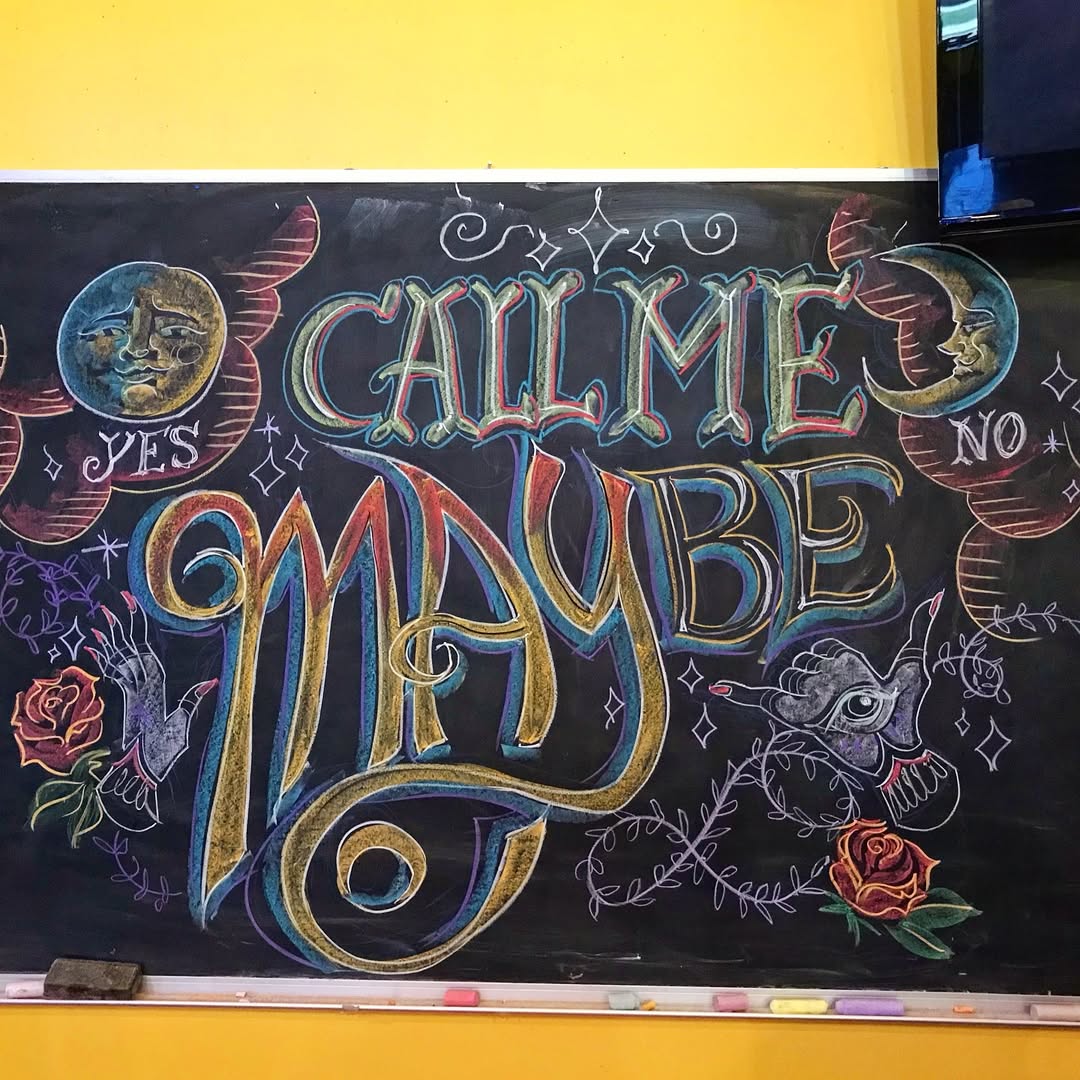 CALL ME
YES
NO
MAYBE